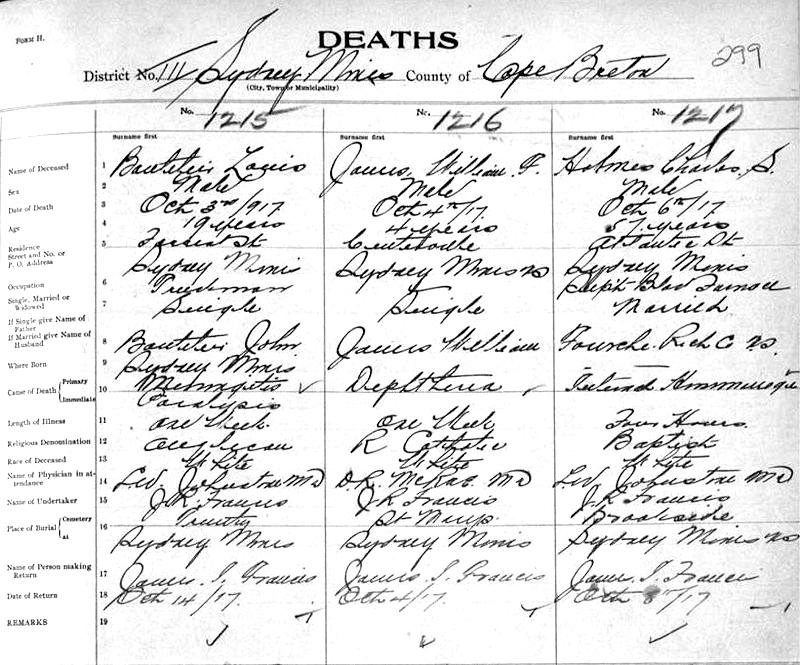 FORM H.
DEATHS
299
District No. 111 Sydney Mines County of Cape Breton
(City, Town or Municipality)
No. 1215 No. 1216 No. 1217
Surname first Surname first Surname first
Name of Deceased 1 Louis James, William F. Holmes Charles, S.
Sex 2 Male Male Male
Date of Death 3 Oct 3rd/917 Oct 4th/17 Oct 6th/17
Age 4 19 years 4 years 57 years
Residence
Street and No. or
P. O. Address
5 St Centreville Atlantic St
Sydney Mines Sydney Mines NS Sydney Mines
Occupation 6
Single, Married or
Widowed
7 Single Single Married
If Single give Name of
Father
If Married give Name of
Husband
8 John James William Fourche Rich C NS.
Where Born 9 Sydney Mines
Cause of Death { Primary 10 Diphtheria
Immediate Paralysis
Length of Illness 11 One Week One Week Hours
Religious Denomination 12 Anglican R Catholic Baptist
Race of Deceased 13 White White White
Name of Physician in at-
tendance
14 L.W. Johnstone Md D.R. McRae Md L.W. Johnstone Md
Name of Undertaker 15 J.R. Francis J.R. Francis J.R. Francis
Place of Burial { Cemetery 16 Trinity St Marys Brookside
at Sydney Mines Sydney Mines Sydney Mines NS
Name of Person making
Return
17 James J. Francis James J. Francis James J. Francis
Date of Return 18 Oct 14/17. Oct 4/17. Oct 8th/17
REMARKS 19